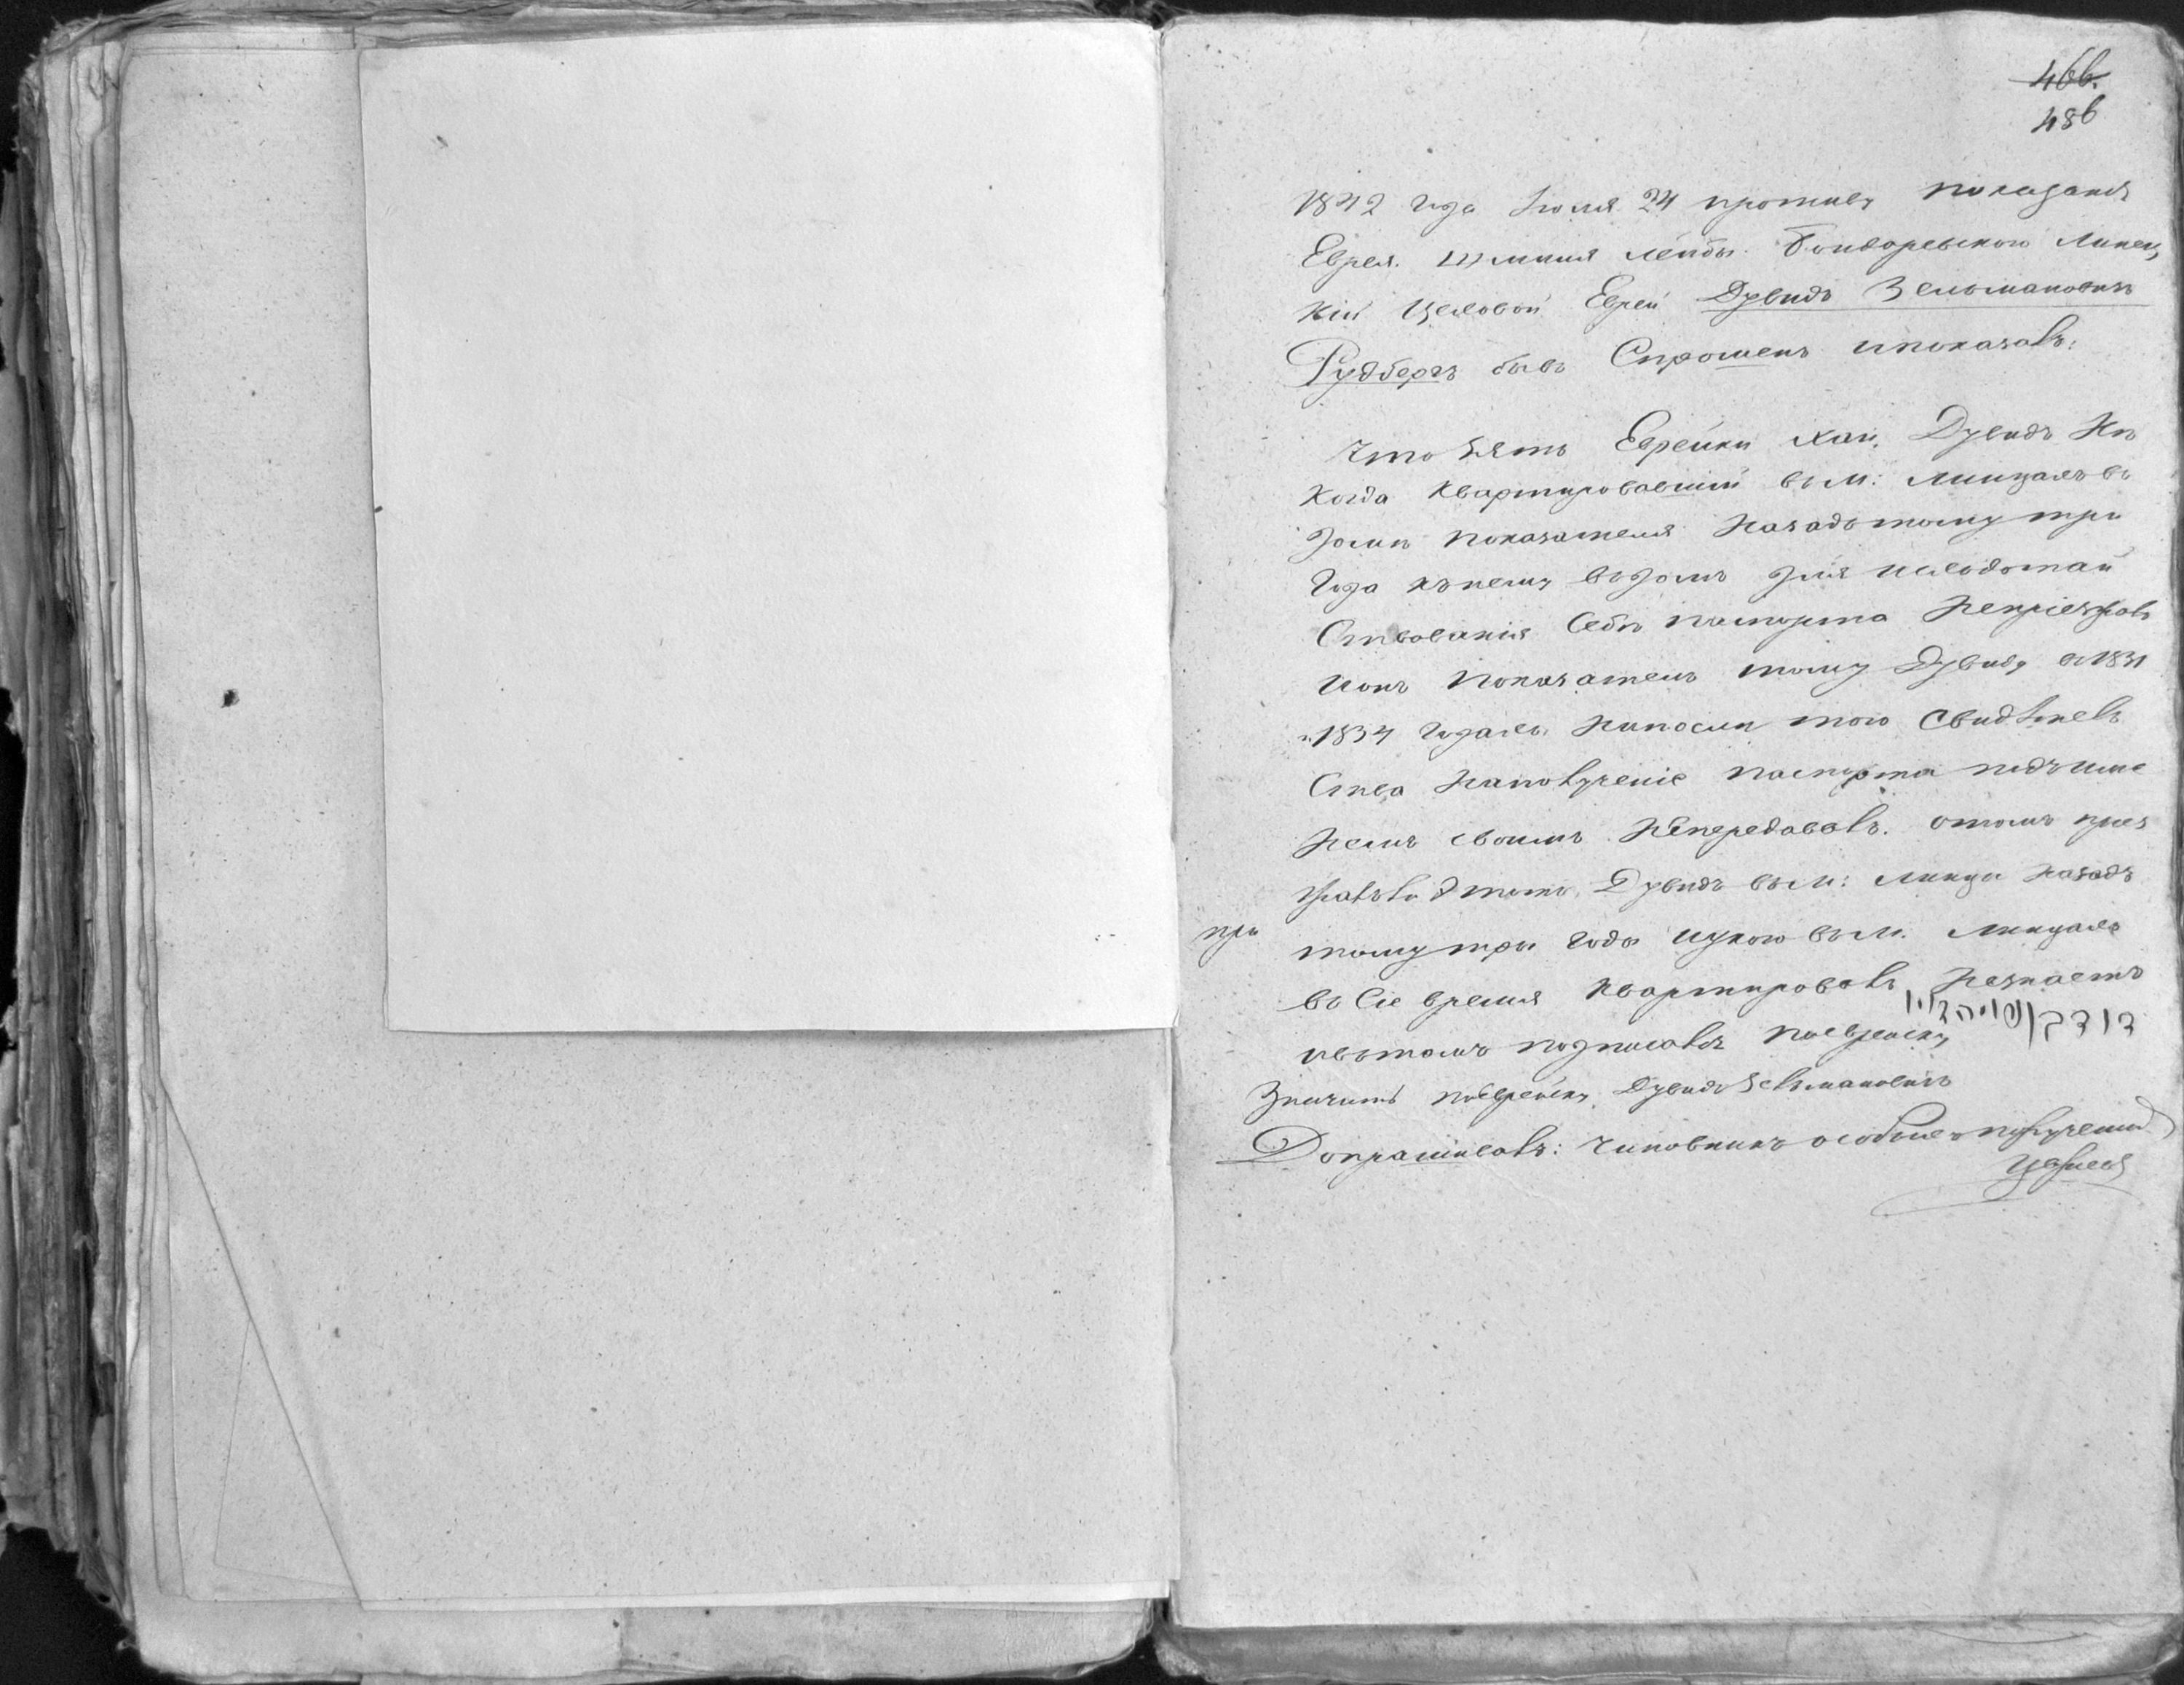 466.
486
1842 года Іюля 24 противъ показанія
Еврея Шмиля Лейбы Бондаревскаго Липец
кій Цеховой Еврей Дувидъ Зельмановичъ
Рудбергъ бывъ Спрошенъ ипоказалъ:
Что Зять Еврейки Хаи, Дувидъ Нѣ
когда квартировавшій въ м: Липцахъ въ
домѣ показателя назадъ тому три
года къ нему въ домъ для исходотай
Ствованія Себѣ паспорта Непріезжалъ
ионъ показатель тому Дувиду в 1831
и 1834 годахъ Николи того Свидѣтель
Ства Наполученіе паспорта подъ име
немъ своимъ Непередовалъ. отомъ приез
жалъ ли тотъ Дувидъ въ м: Липцы назадъ
тому три года иукого въ м. Липцахъ
при
въ Сіе время квартировалъ Незнаетъ
ивътомъ подписался поеврейску
דוד
Значитъ поеврейску Дувидъ Зельмановичъ
Допрашивалъ: Чиновникъ особыхъ порученій